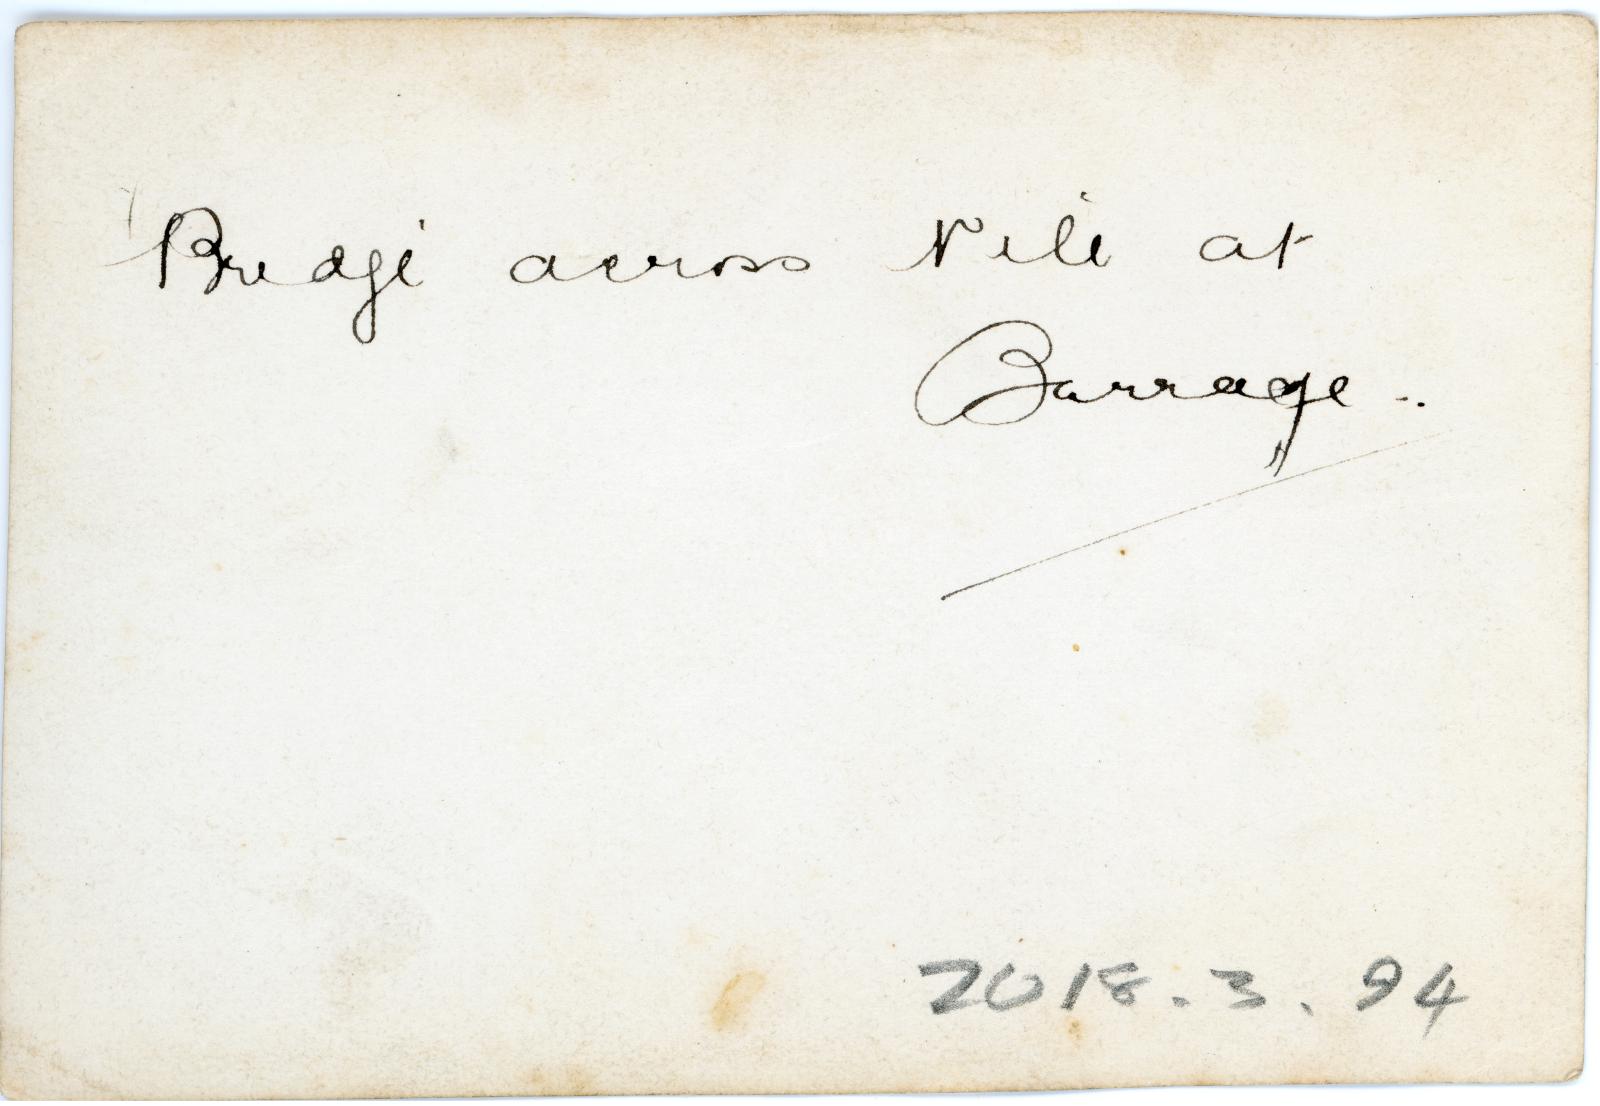 Bridge across Nile at
Barrage -.
2018.3.94